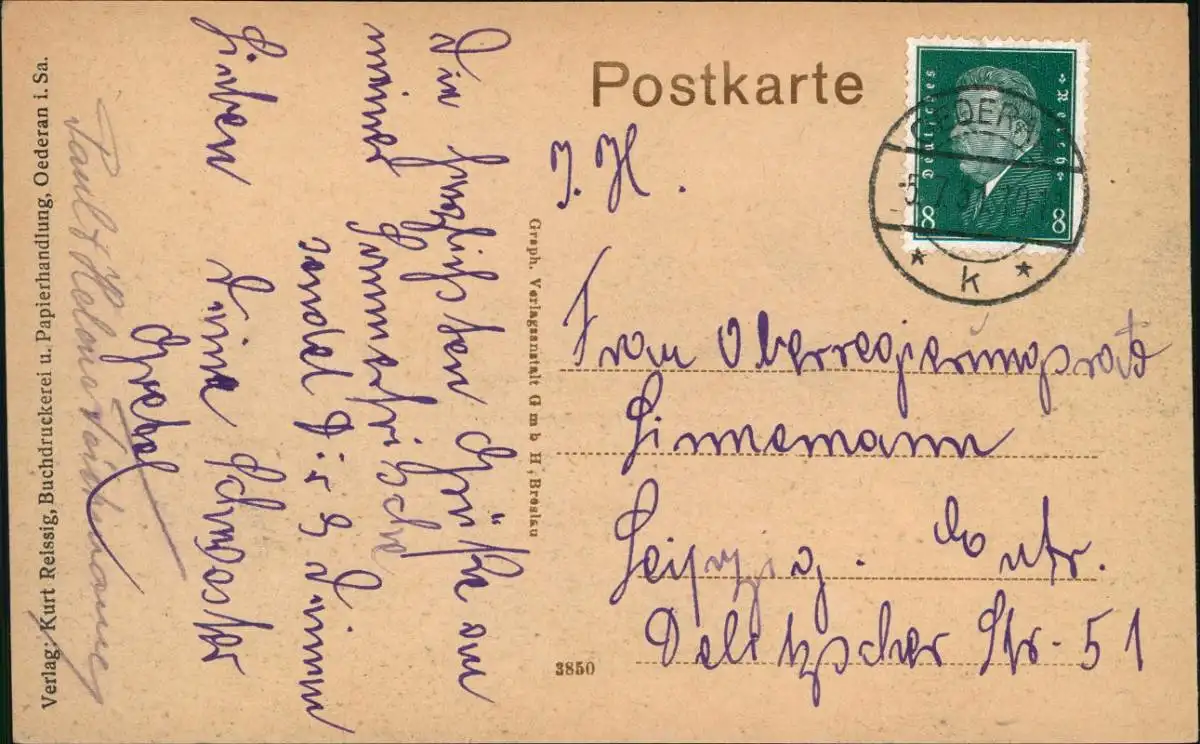 Postkarte
Deutsches Reich
8 8
OEDERAN
5.7.3
k
J. H.
Frau Oberregierungsrats
Linnemann
Leipzig.
Delitzscher Str. 51
3850
Graph. Verlagsanstalt G m b H, Breslau
Die herzlichsten Grüße aus
meiner Sommerfrische
sendet Dir u. Deinen
Lieben Deine Schwester
Gretel
Verlag: Kurt Reissig, Buchdruckerei u. Papierhandlung, Oederan i. Sa.